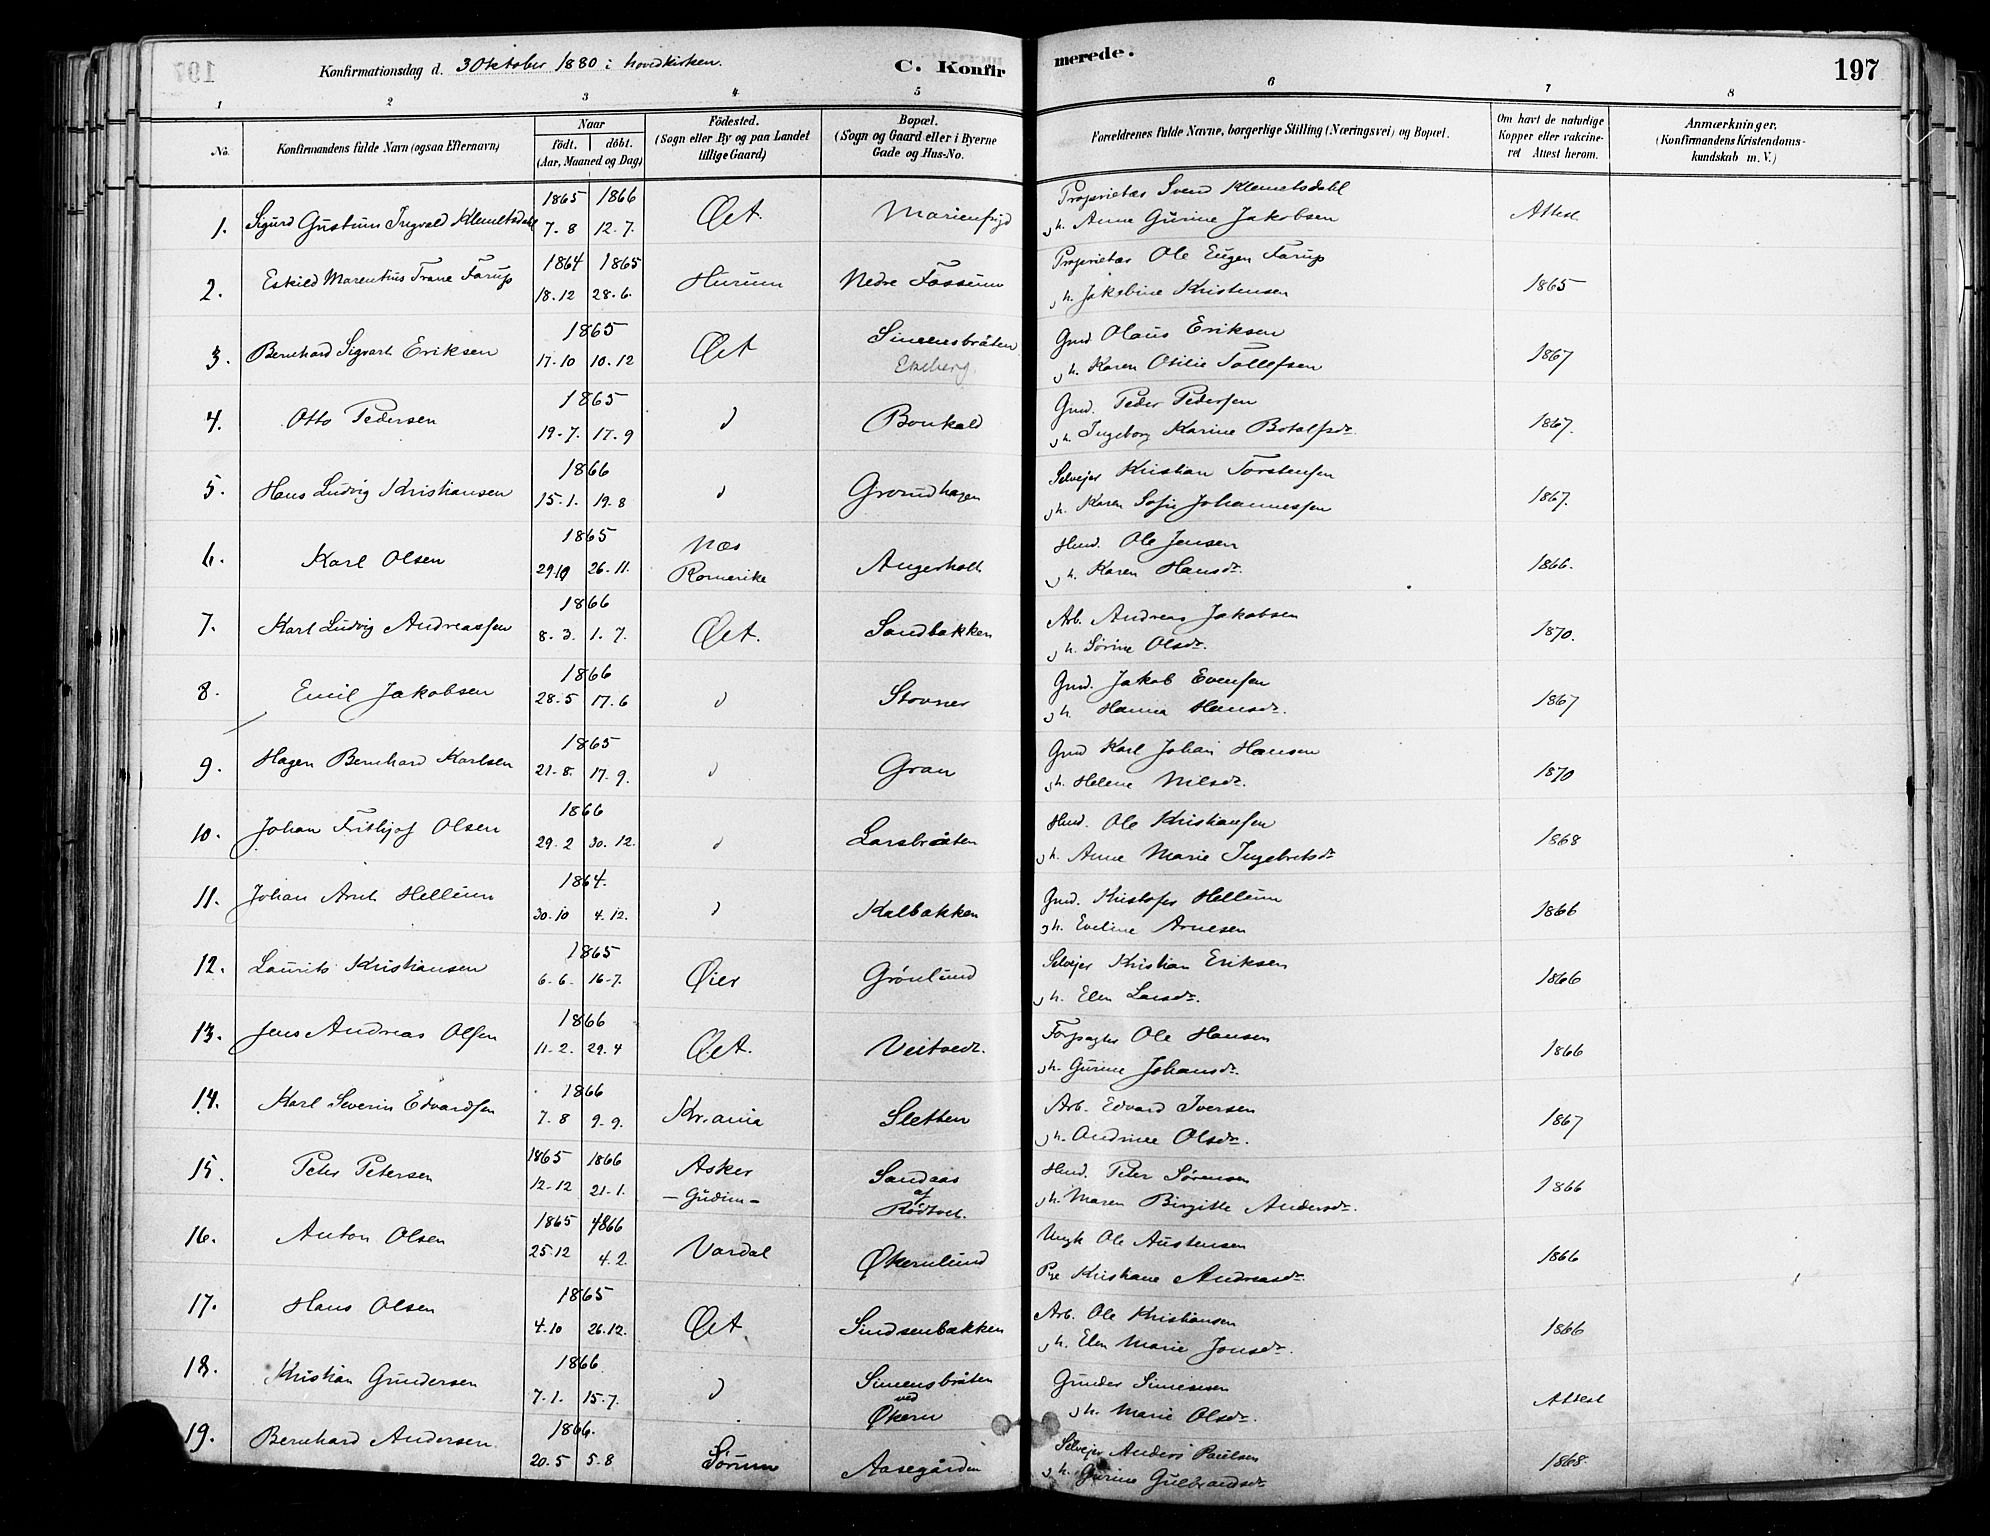 Konfirmationsdag d. 3 Oktober 1880 i hovedkirken.
C. Konfirmerede.
197
1 2 3 4 5 6 7 8
No.
Konfirmandens fulde Navn (ogsaa Efternavn)
Naar
födt. döbt.
(Aar, Maaned og Dag)
Födested.
(Sogn eller By og paa Landet
tillige Gaard)
Bopæl.
(Sogn og Gaard eller i Byerne
Gade og Hus-No.
Forældrenes fulde Navne, borgerlige Stilling (Næringsvei) og Bopæl.
Om havt de naturlige
Kopper eller vakcine-
ret Attest herom.
Anmærkninger.
(Konfirmandens Kristendoms-
kundskab m. V.)
1865 1866 Proprietær Svend Klemetsdahl
1. Sigurd Gustum Ingvald Klemetsdahl 7-8 12.7. Øet. Marienfryd
h. Anne Gurine Jakobsen Attest
1864 1865 Proprietær Ole Eugen Farup
2. Eskild Marentius Trane Farup 18.12 28.6. Hurum Nedre Fossum h. Jakobine Kristensen 1865
1865 Gmd Olaus Eriksen
3. Bernhard Sigvart Eriksen 17.10 10.12 Øet Simensbråten
Ekeberg h. Karen Otilie Tollefsen 1867
1865 Gmd. Peder Pedersen
4. Otto Pedersen 19.7. 17.9 d Bonkald h. Ingeborg Karine Botolfsdr. 1867.
1866 Selvejer Kristian Torstensen
5. Hans Ludvig Kristiansen 15.1. 19.8 d Grorudhagen h. Karen Sofie Johannessen 1867.
1865 Næs Hmd. Ole Jensen
6. Karl Olsen 29.10 26.11. Romerike Augerholt h. Karen Hansdr. 1866.
1866 Arb. Andreas Jakobsen
7. Karl Ludvig Andreassen 8.3. 1.7. Øet. Sandbakken h. Sørine Olsdr. 1870.
1866 Gmd. Jakob Evensen
8. Emil Jakobsen 28.5 17.6 d Stovner h. Hanna Hansdr. 1867
1865 Gmd Karl Johan Hansen
9. Hagen Bernhard Karlsen 21.8. 17.9. d Gran h. Helene Nilsdr. 1870
1866 Hmd. Ole Kristiansen
10. Johan Frithjof Olsen 29.2 30.12. d Larsbråten h. Anne Marie Ingebretsdr 1868
1864. Gmd. Kristofer Hellum
11. Johan Arnt Hellum 30.10 4.12. d Kalbakken h. Eveline Arnesen 1866
1865 Selvejer Kristian Eriksen
12. Laurits Kristiansen 6.6. 16.7. Øier Grønlund h. Elen Larsdr. 1866
1866 Forpagter Ole Hansen
13. Jens Andreas Olsen 11.2. 29.4 Øet. Veitvedt. h. Gurine Johansdr. 1866
1866 Arb. Edvard Iversen
14. Karl Severin Edvardsen 7.8 9.9. Kr.ania Sletten h. Andrine Olsdr. 1867
1865 1866 Asker Sandaas Hmd. Peter Sørensen
15. Peter Petersen 12-12 21-1. - Gudim - af
Rødtvet. h. Maren Birgitte Andersdr. 1866
1865 1866 Ungk Ole Austensen
16. Anton Olsen 25.12 4.2. Vardal Økernlund Pge Kristiane Andreasdr 1866
1865 Arb. Ole Kristiansen
17. Hans Olsen 4.10 26.12. Øet Sindsenbakken h. Elen Marie Jonsdr. 1866
1866 Simensbråten Gunder Simensen
18. Kristian Gundersen 7.1. 15.7. d ved
Økern h. Marie Olsdr. Attest
1866. Selvejer Anders Paulsen
19. Bernhard Andersen. 20.5 5.8 Sørum Aasegården h. Gurine Gulbrandsdr 1868.